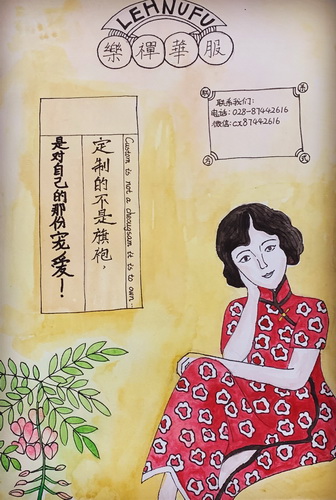 LEHNUFU
樂禪華服
联系方式
联系我们:
电话: 028-87442616
微信: cx87442616
Custom is not a cheougsam it is to own
定制的不是旗袍，
是对自己的那份宠爱！